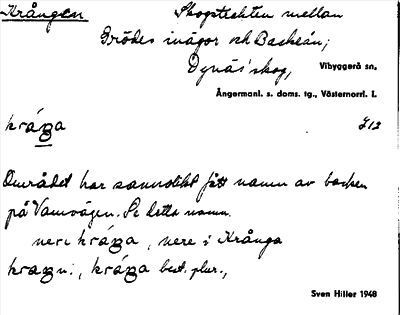 Krången Skogstrakten mellan
Brödes inägor och Backeån;
Dynäs' skog, Vibyggerå sn.
Ångermanl. s. doms. tg., Västernorrl. l.
kråŋa
Området har sannolikt fått namn av backen
på Vamvägen. Se detta namn.
neri kråŋa, nere i Krånga
best. plur.,
Sven Hiller 1948